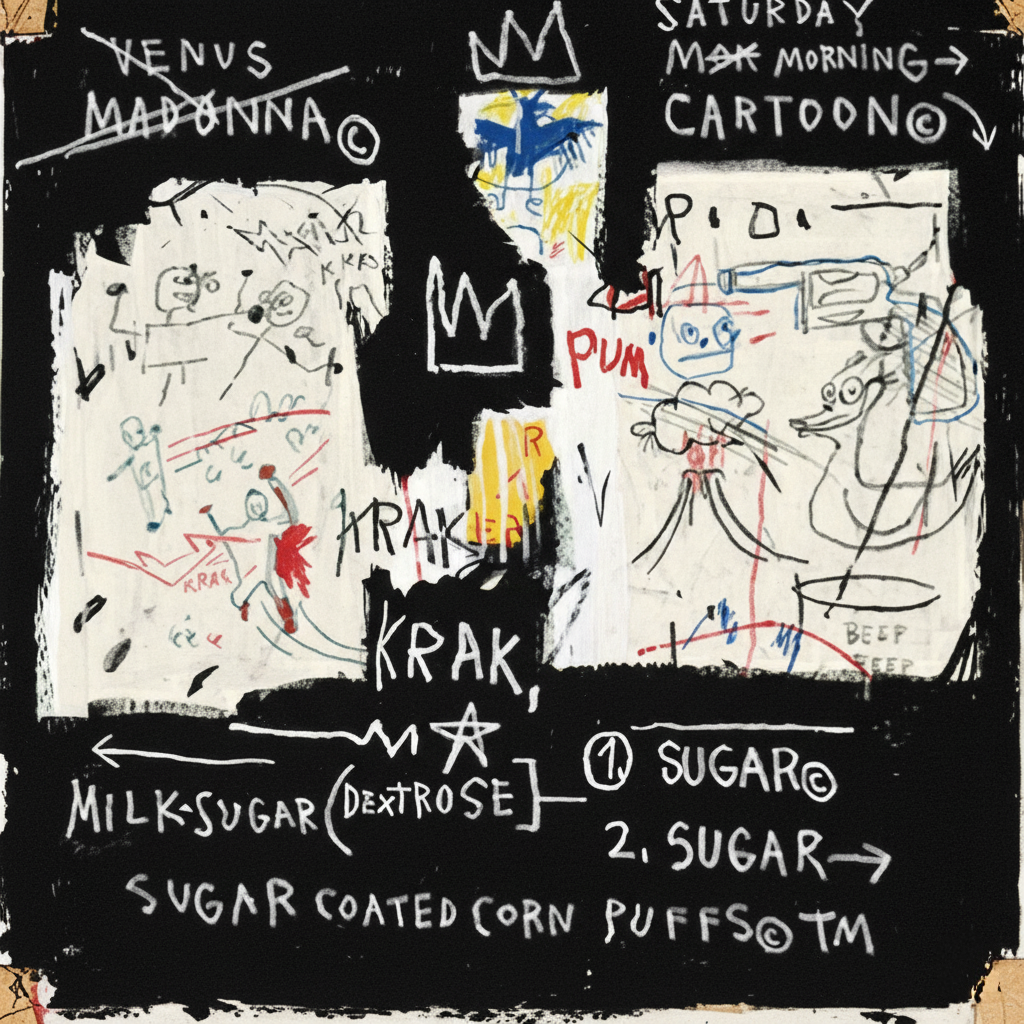 VENUS
MADONNA©
SATURDAY
MORNING→
CARTOON©
P.O.
PUM
R
KRAK
ER
KRAK
KRAK,
BEEP
BEEP
MILK-SUGAR (DEXTROSE]
1. SUGAR©
2. SUGAR→
SUGAR COATED CORN PUFFS© TM